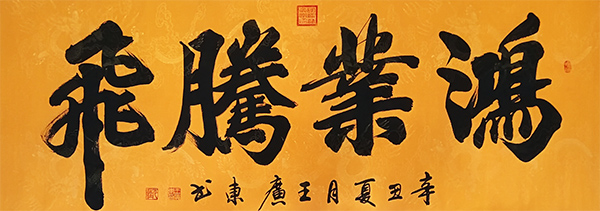 鴻業騰飛
辛丑夏月王廣東书